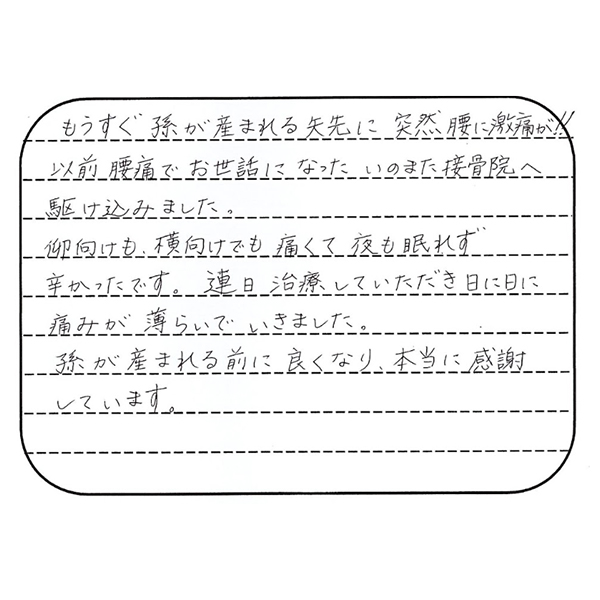 もうすぐ 孫が産まれる矢先に 突然 腰に激痛が!!
以前 腰痛で お世話に なった いのまた接骨院へ
駆け込みました。
仰向けも、横向けでも 痛くて 夜も眠れず
辛かったです。 連日 治療していただき 日に日に
痛みが 薄らいで いきました。
孫が産まれる前に 良くなり、本当に 感謝
しています。